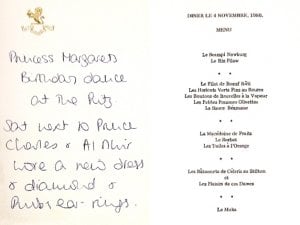 Princess Margarets
Birthday dance
at the Ritz
Sat next to Prince
Charles & Al Nhir
wore a new dress
& diamond &
Ruby ear-rings.
DINER LE 4 NOVEMBRE, 1980.
MENU
Le Soumpi Newburg
Le Riz Pilaw
* *
Le Filet de Boeuf Rôti
Les Haricots Verts Fins au Beurre
Les Boutons de Bruxelles à la Vapeur
Les Petites Pommes Olivettes
La Sauce Béarnaise
* *
La Marveilleuse de Fruits
Le Sorbet
Les Tuiles à l'Orange
* *
Les Bâtonnets de Céleris au Stilton
et
Les Plaisirs de ces Dames
* *
Le Moka